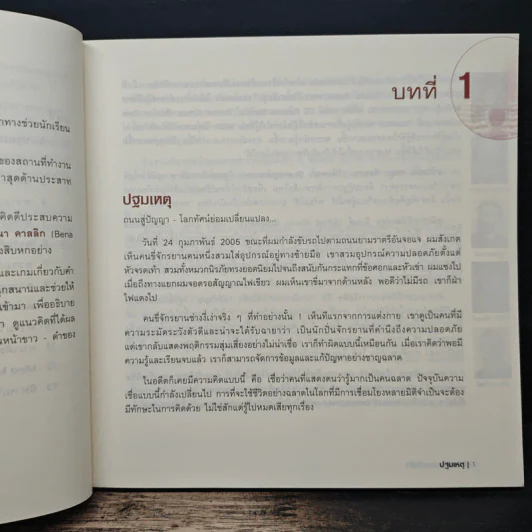 าทางช่วยนักเรียน
ของสถานที่ทำงาน
าสุดด้านประสาท
คิดดีประสบความ
นา คาลลิก (Bena
งสิบหกอย่าง
และเกมเกี่ยวกับคำ
นุกสนานและช่วยให้
เข้ามา เพื่ออธิบาย
า ดูแนวคิดที่ได้ผล
นหน้าขาว - ดำของ
บทที่ 1
ปฐมเหตุ
ถนนสู่ปัญญา - โลกทัศน์ย่อมเปลี่ยนแปลง...
วันที่ 24 กุมภาพันธ์ 2005 ขณะที่ผมกำลังขับรถไปตามถนนยามราตรีอันจอแจ ผมสังเกต
เห็นคนขี่จักรยานคนหนึ่งสวมใส่อุปกรณ์อยู่ทางซ้ายมือ เขาสวมอุปกรณ์ความปลอดภัยตั้งแต่
หัวจรดเท้า สวมทั้งหมวกนิรภัยทรงยอดนิยมไปจนถึงสนับกันกระแทกที่ข้อศอกและหัวเข่า ผมแซงไป
เมื่อถึงทางแยกผมจอดรอสัญญาณไฟเขียว ผมเห็นเขาขี่มาจากด้านหลัง พอดีว่าไม่มีรถ เขาก็ฝ่า
ไฟแดงไป
คนขี่จักรยานช่างงี่เง่าจริง ๆ ที่ทำอย่างนั้น ! เห็นทีแรกจากการแต่งกาย เขาดูเป็นคนที่มี
ความระมัดระวังตัวดีและน่าจะได้รับฉายาว่า เป็นนักปั่นจักรยานที่คำนึงถึงความปลอดภัย
แต่เขากลับแสดงพฤติกรรมสุ่มเสี่ยงอย่างไม่น่าเชื่อ เราก็ทำผิดแบบนี้เหมือนกัน เมื่อเราคิดว่าพอมี
ความรู้และเรียนจบแล้ว เราก็สามารถจัดการข้อมูลและแก้ปัญหาอย่างชาญฉลาด
ในอดีตก็เคยมีความคิดแบบนี้ คือ เชื่อว่าคนที่แสดงตนว่ารู้มากเป็นคนฉลาด ปัจจุบันความ
เชื่อแบบนี้กำลังเปลี่ยนไป การที่จะใช้ชีวิตอย่างฉลาดในโลกที่มีการเชื่อมโยงหลายมิติจำเป็นจะต้อง
มีทักษะในการคิดด้วย ไม่ใช่สักแต่รู้ไปหมดเสียทุกเรื่อง
ปฐมเหตุ | 1